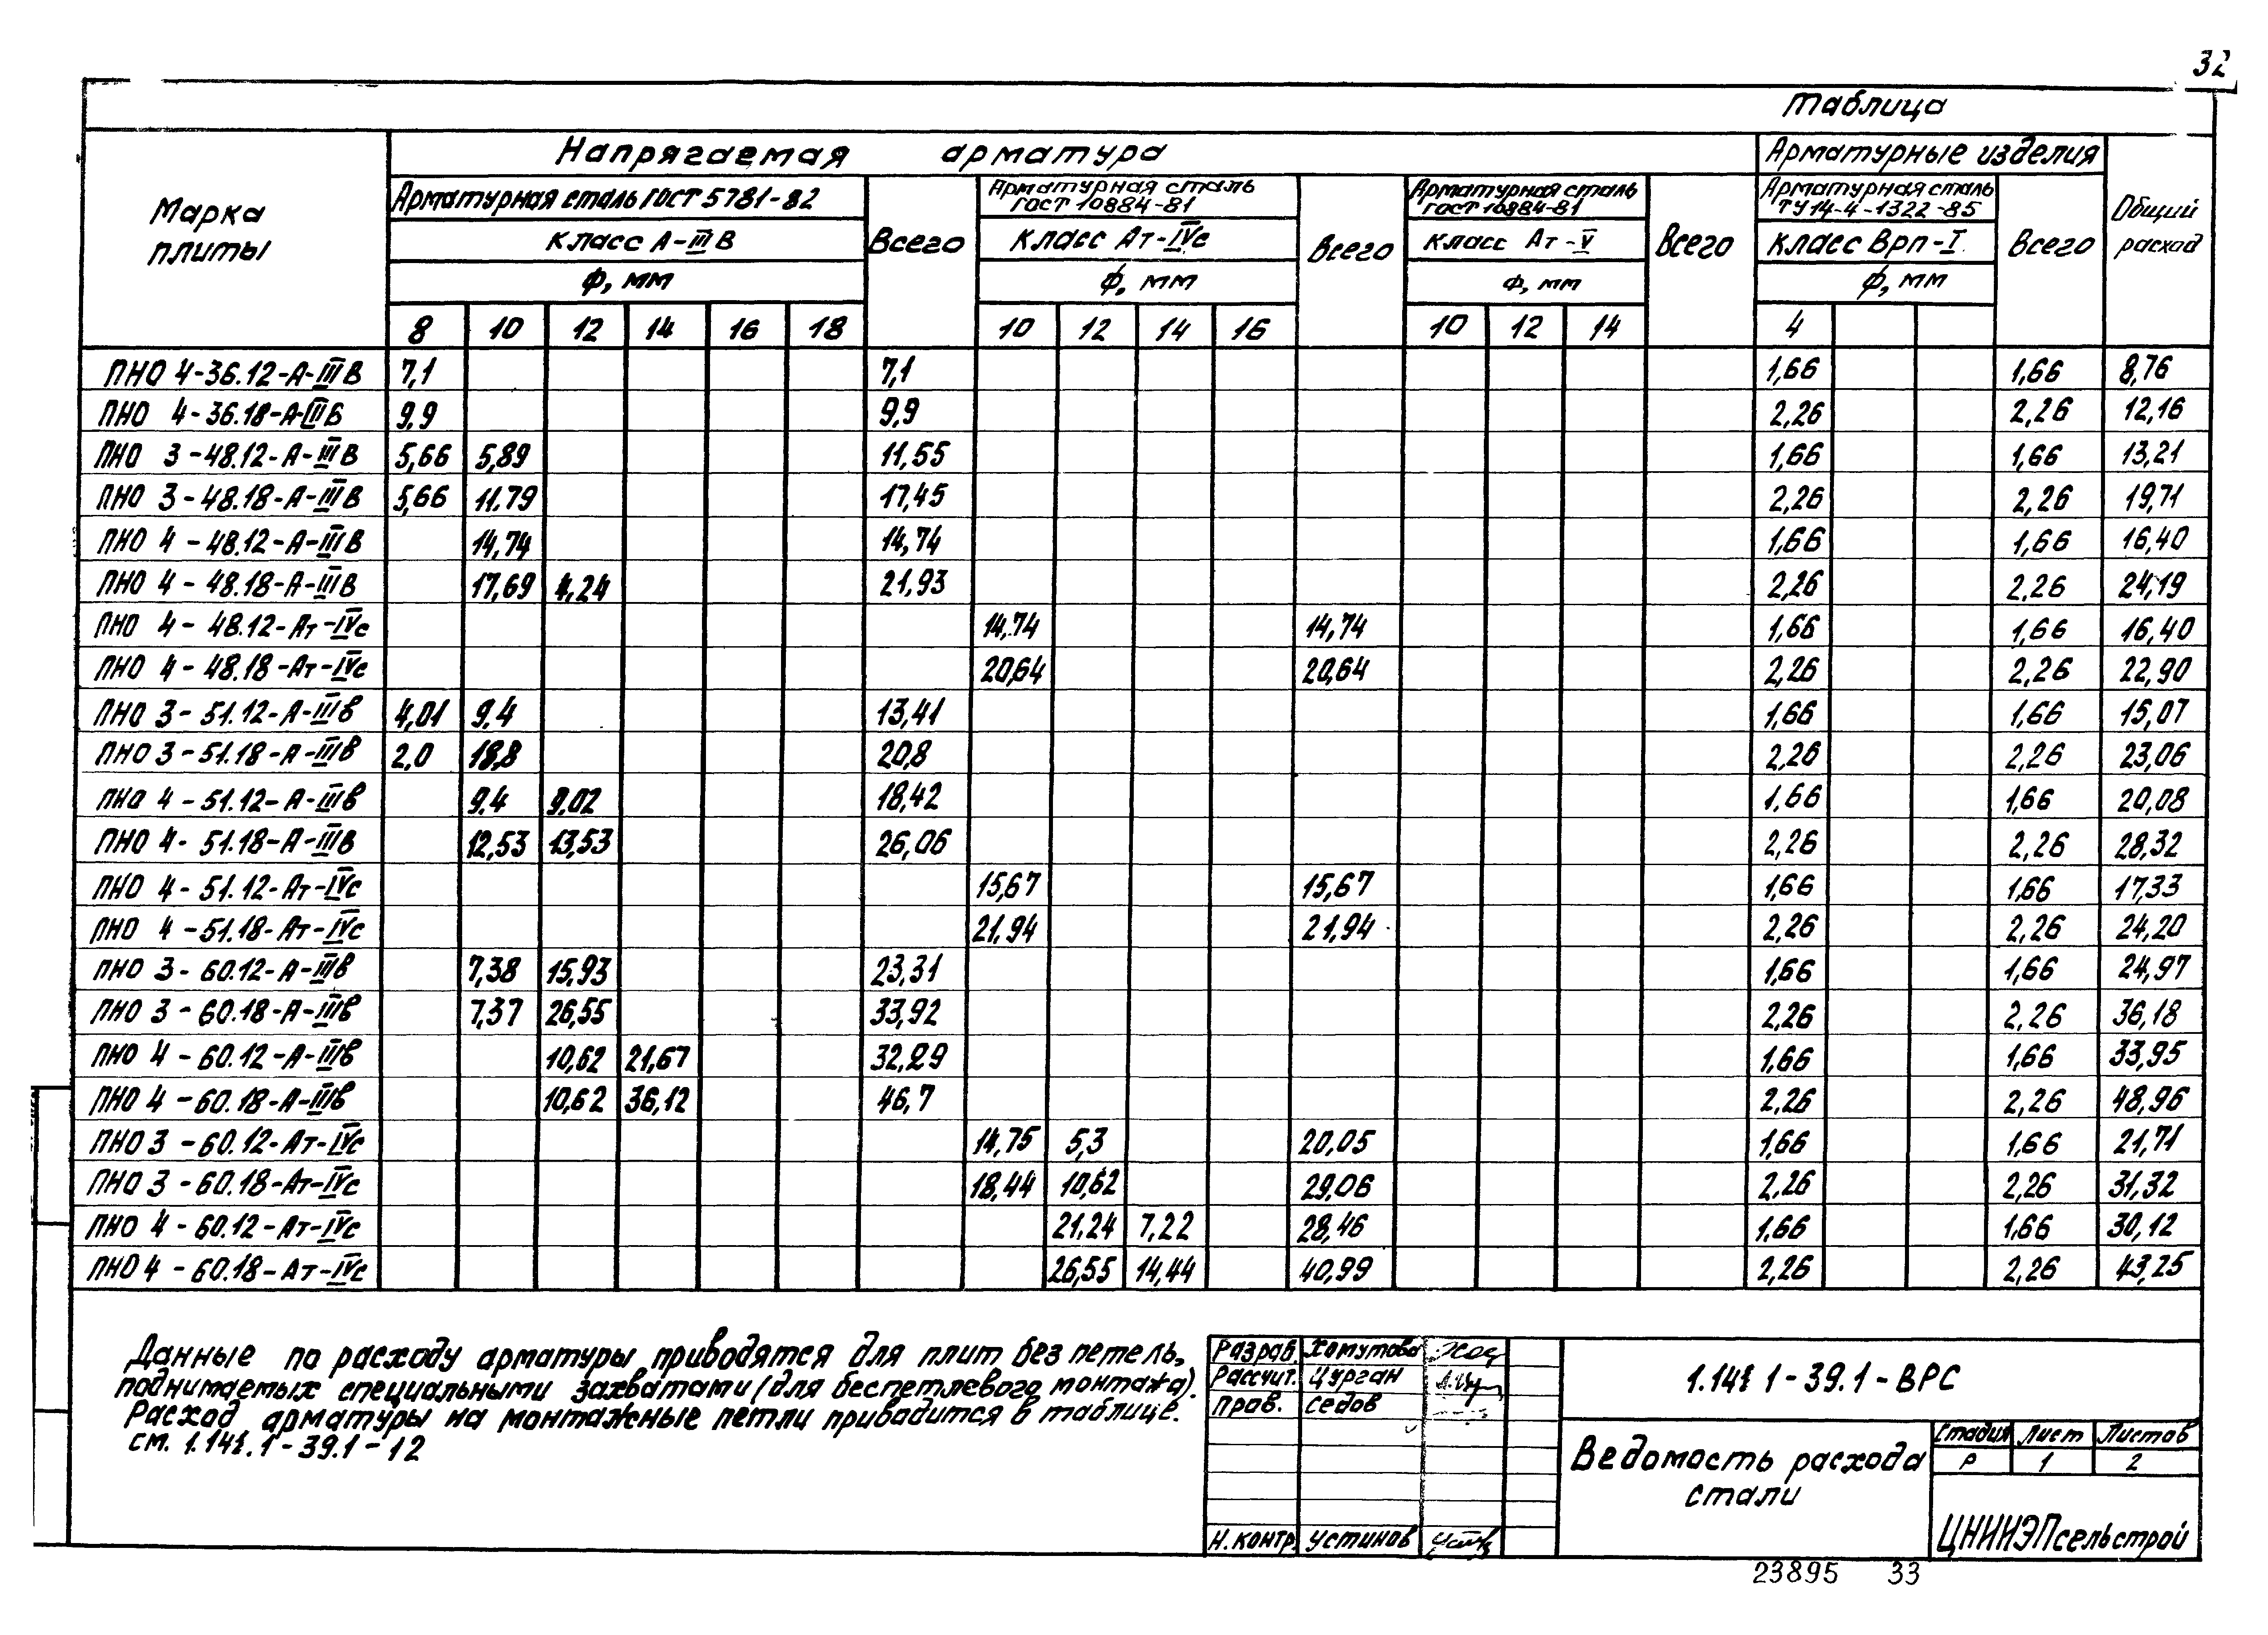 32
Таблица
Марка плиты
Напрягаемая арматура
Арматурные изделия
Общий расход
Арматурная сталь ГОСТ 5781-82
Всего
Арматурная сталь ГОСТ 10884-81
Всего
Арматурная сталь ГОСТ 10884-81
Всего
Арматурная сталь ТУ 14-4-1322-85
Всего
класс А-III В
класс Ат-IVс
класс Ат-V
класс Врп-I
Ф, мм
Ф, мм
Ф, мм
Ф, мм
8 10 12 14 16 18 10 12 14 16 10 12 14 4
ПНО 4-36.12-А-III В 7,1 7,1 1,66 1,66 8,76
ПНО 4-36.18-А-III В 9,9 9,9 2,26 2,26 12,16
ПНО 3-48.12-А-III В 5,66 5,89 11,55 1,66 1,66 13,21
ПНО 3-48.18-А-III В 5,66 11.79 17,45 2,26 2,26 19,71
ПНО 4-48.12-А-III В 14,74 14,74 1,66 1,66 16,40
ПНО 4-48.18-А-III В 17,69 4,24 21,93 2,26 2.26 24,19
ПНО 4-48.12-Ат-IVс 14,74 14,74 1,66 1,66 16,40
ПНО 4-48.18-Ат-IVс 20,64 20,64 2,26 2,26 22,90
ПНО 3-51.12-А-IIIв 4,01 9,4 13,41 1,66 1,66 15,07
ПНО 3-51.18-А-IIIв 2,0 18,8 20,8 2,26 2,26 23,06
ПНО 4-51.12-А-IIIв 9,4 9,02 18,42 1,66 1,66 20,08
ПНО 4-51.18-А-IIIв 12,53 13,53 26,06 2,26 2,26 28,32
ПНО 4-51.12-Ат-IVс 15,67 15,67 1,66 1,66 17,33
ПНО 4-51.18-Ат-IVс 21,94 21,94 2,26 2,26 24,20
ПНО 3-60.12-А-IIIв 7,38 15,93 23,31 1,66 1,66 24,97
ПНО 3-60.18-А-IIIв 7,37 26,55 33,92 2,26 2,26 36,18
ПНО 4-60.12-А-IIIв 10,62 21,67 32,29 1,66 1,66 33,95
ПНО 4-60.18-А-IIIв 10,62 36,12 46,7 2,26 2,26 48,96
ПНО 3-60.12-Ат-IVс 14,75 5,3 20,05 1,66 1,66 21,71
ПНО 3-60.18-Ат-IVс 18,44 10,62 29,06 2,26 2,26 31,32
ПНО 4-60.12-Ат-IVс 21,24 7,22 28,46 1,66 1,66 30,12
ПНО 4-60.18-Ат-IVс 26,55 14,44 40,99 2,26 2,26 43,25
Данные по расходу арматуры приводятся для плит без петель,
поднимаемых специальными захватами (для беспетлевого монтажа).
Расход арматуры на монтажные петли приводится в таблице.
см. 1.141.1-39.1-12
Разраб. Хомутова
Рассчит. Цурган
Пров. Седов
Н.контр. Устинов
1.141 1-39.1-ВРС
Ведомость расхода
стали
Стадия Лист Листов
Р 1 2
ЦНИИЭПсельстрой
23895 33